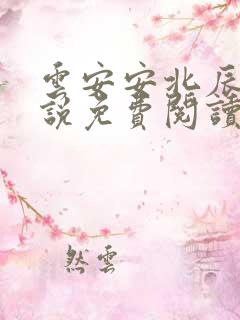 雲安安北辰
說免費閱讀
然雲